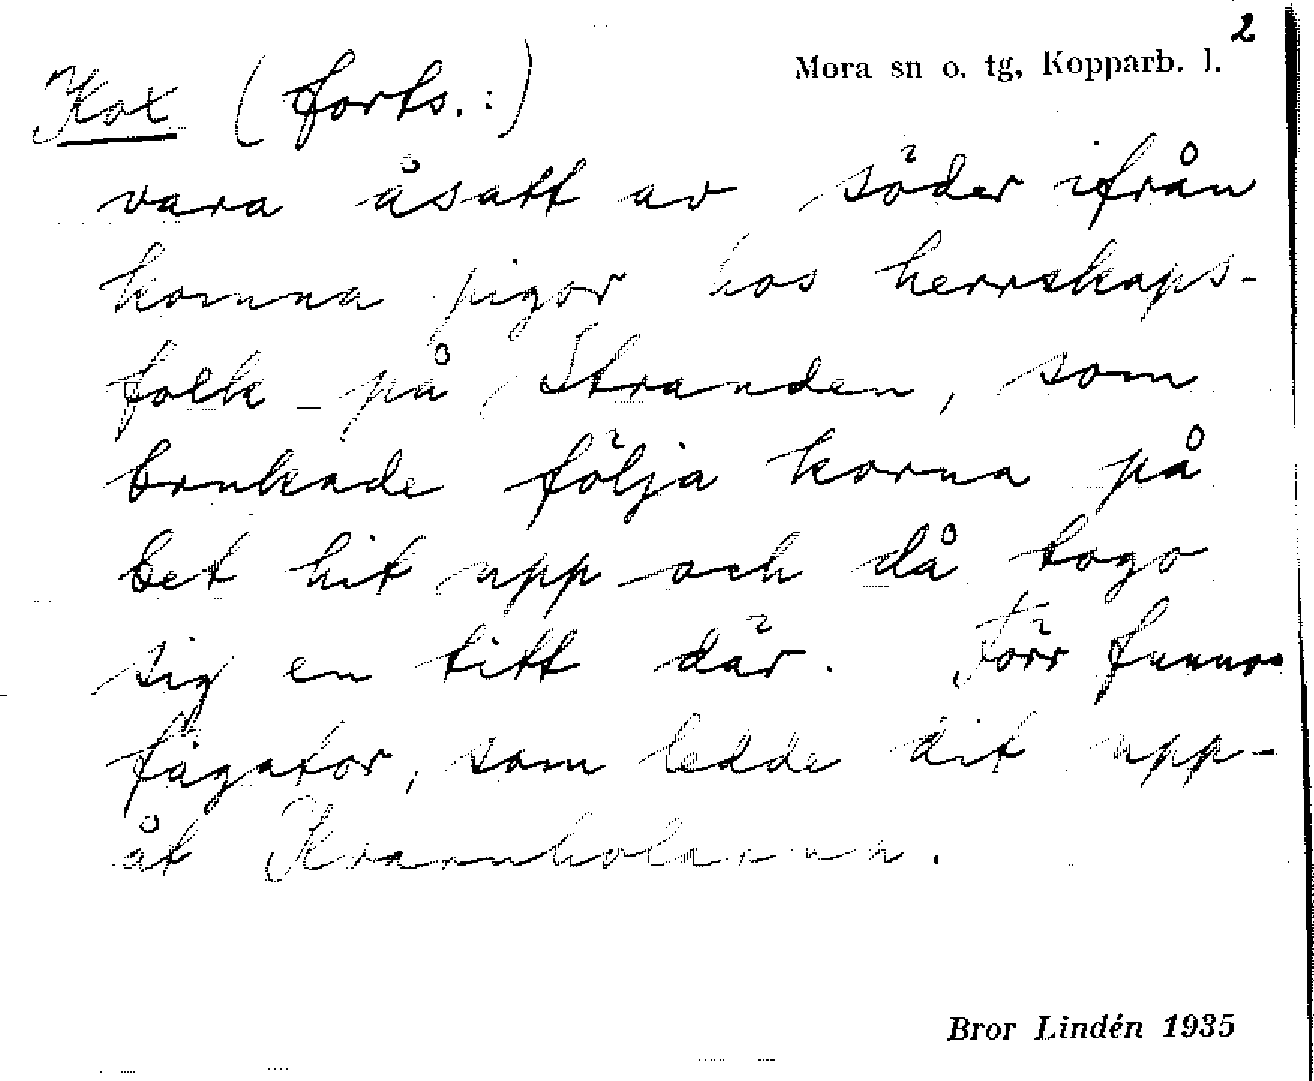 2
Mora sn o. tg, Kopparb. l.
Kox (forts.:)
vara åsatt av söder ifrån
komna pigor hos herrskaps-
folk på Stranden, som
brukade följa korna på
bet hit upp och då togo
sig en titt där. Förr funnos
fägator, som ledde dit upp-
åt
Bror Lindén 1935